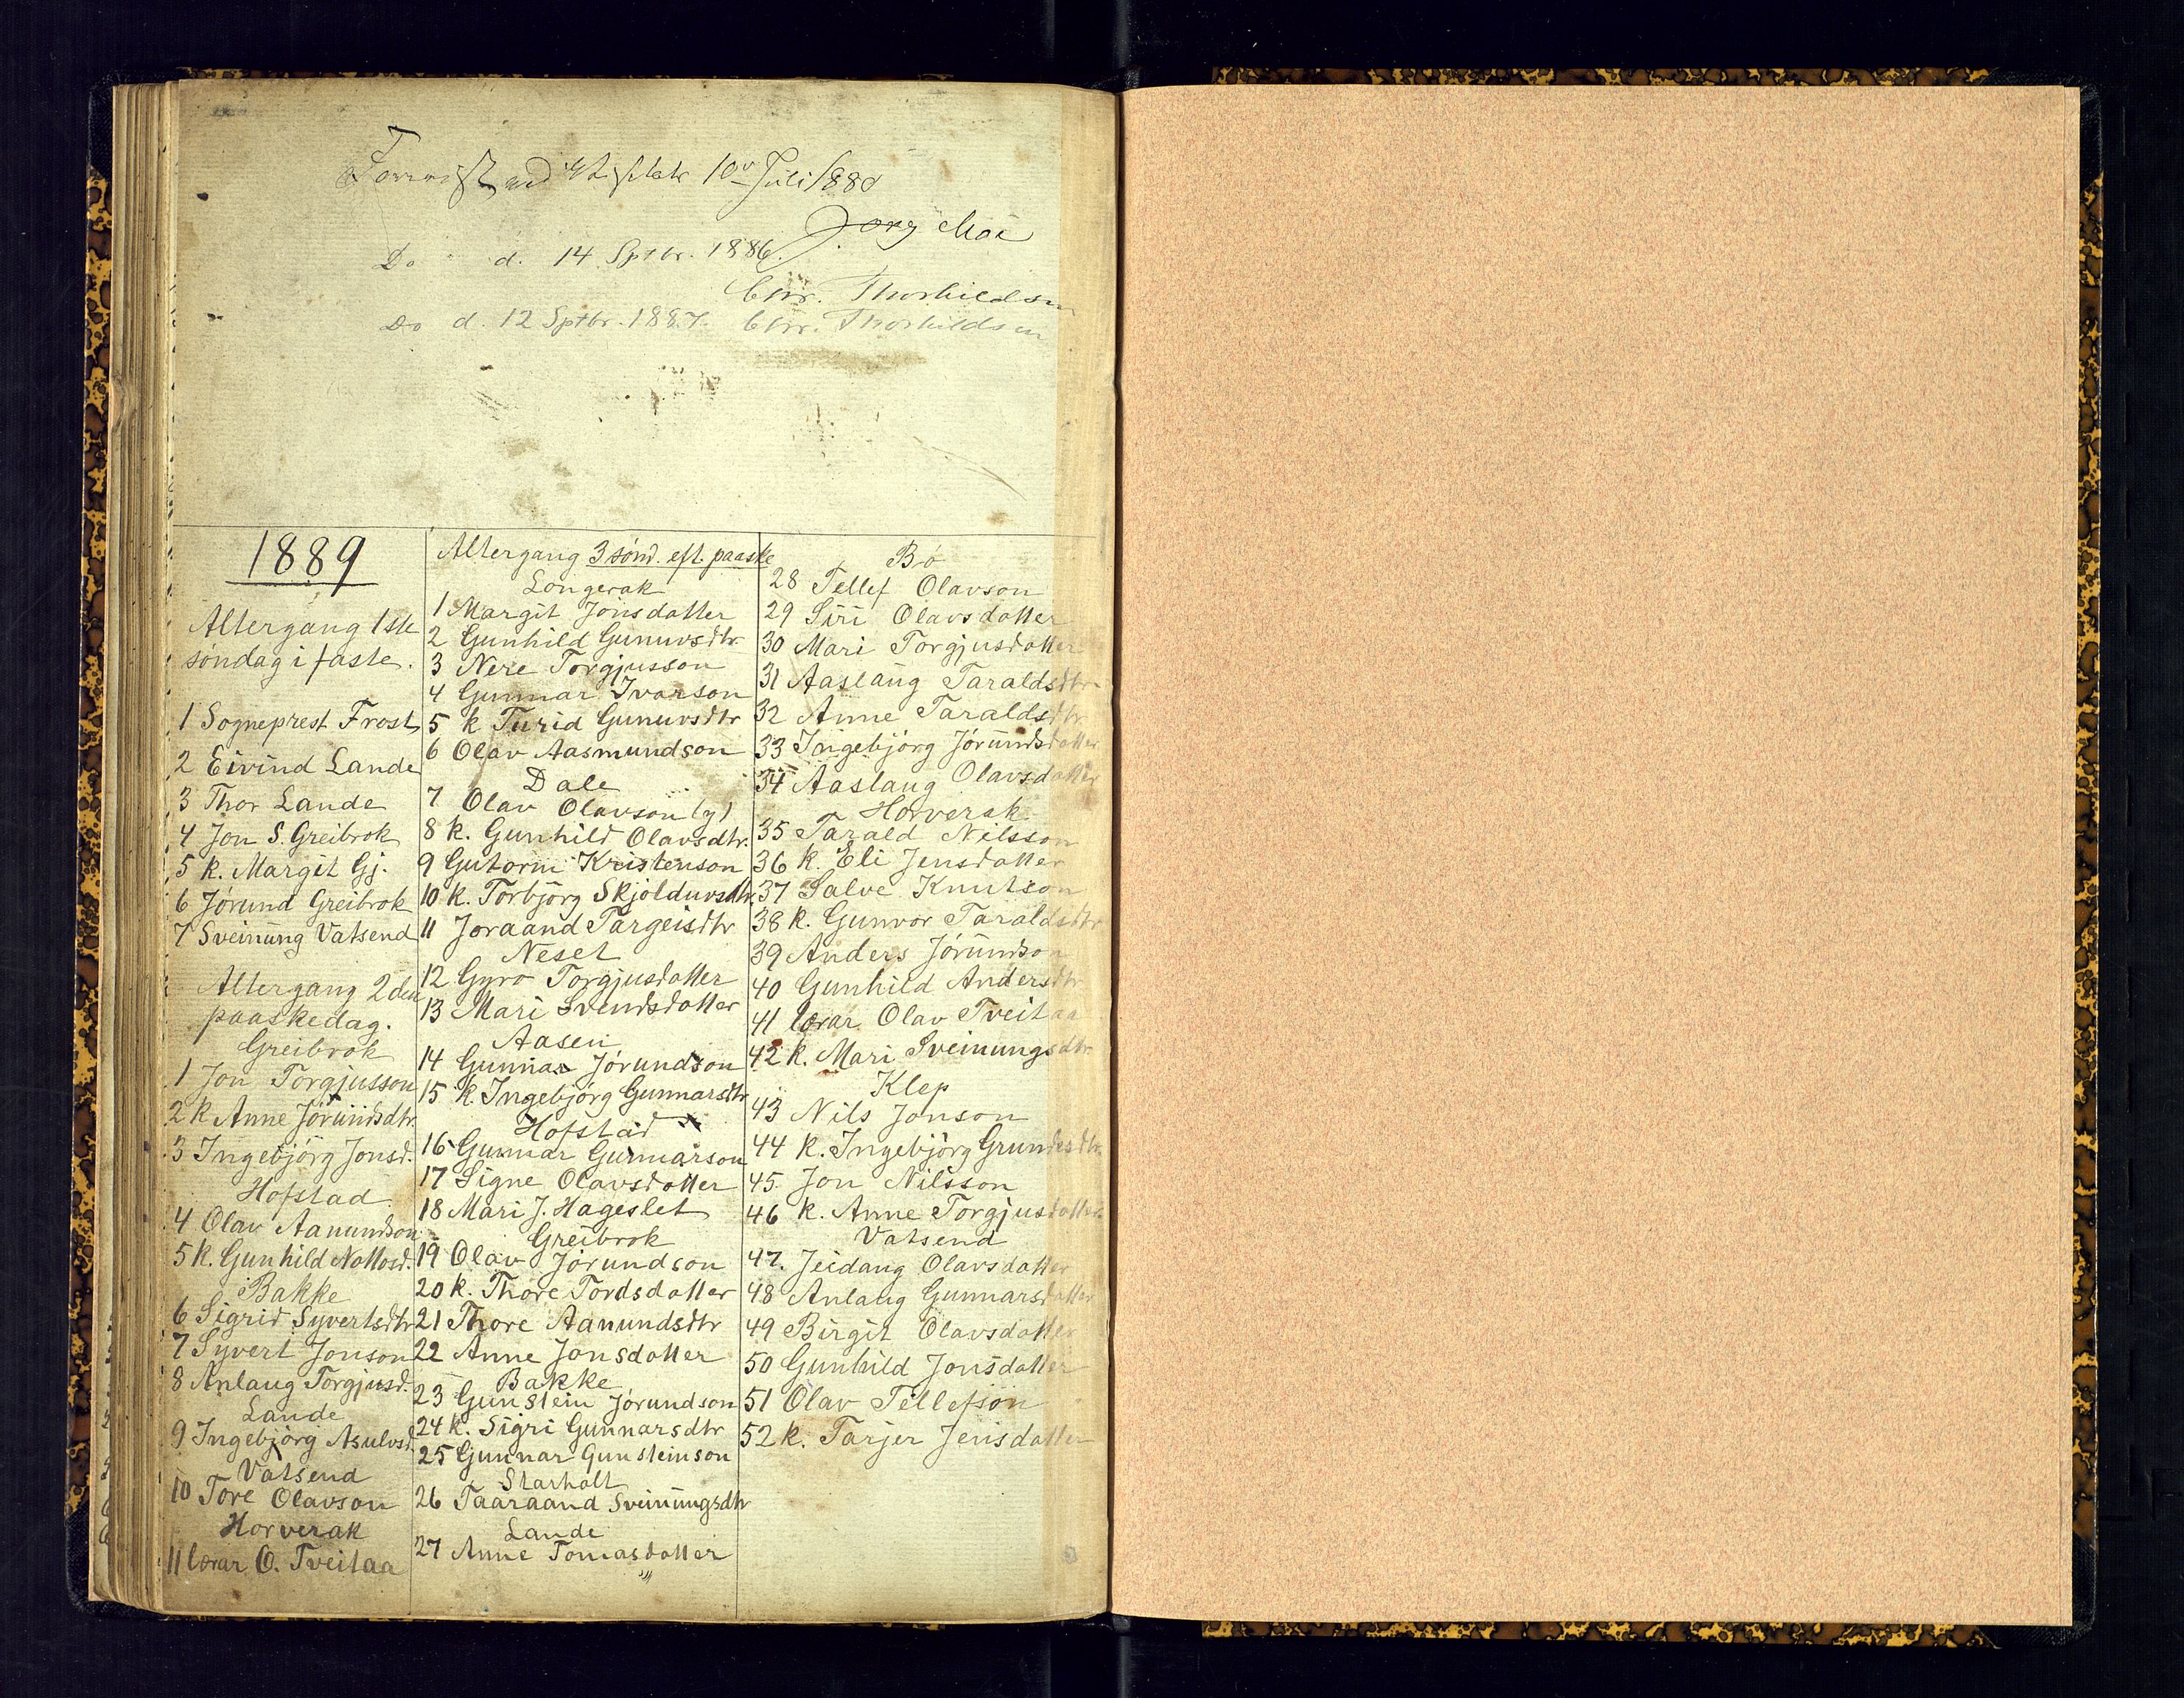 10de Juli 1880
Jørg Moe
Do d. 14 Sptbr. 1886.
Chr. Thorkildsen
Do d. 12 Sptbr. 1887. Chr. Thorkildsen
1889
Altergang 1ste
søndag i faste.
1 Sogneprest Frost
2 Eivind Lande
3 Thor Lande
4 Jon S. Greibrok
5 k. Margit Gj.
6 Jórund Greibrok
7 Sveinung Vatsend
Altergang 2den
paaskedag.
Greibrok
1 Jon Torgjusson
2 k Anne Jórundsdtr.
3 Ingebjórg Jonsd.
Hofstad
4 Olav Aanundson
5 k. Gunhild Nottosd.
Bakke
6 Sigrid Syvertsdtr
7 Syvert Jonson
8 Anlaug Torgjusd.
Lande
9 Ingebjórg Asulvsd.
Vatsend
10 Tore Olavson
Horverak
11 lærar O. Tveitaa
Altergang 3 sónd. eft. paaske
Longerak
1 Margit Jonsdatter
2 Gunhild Gunuvsdtr
3 Nere Torgjusson
4 Gunnar Ivarson
5 k Turid Gunuvsdtr
6 Olav Aasmundson
Dale
7 Olav Olavson (y)
8 k. Gunhild Olavsdtr.
9 Gutorm Kristenson
10 k. Torbjórg Skjolduvsdtr.
11 Joraand Targeisdtr
Neset
12 Gyro Torgjusdatter
13 Mari Svendsdatter
Aasen
14 Gunnar Jórundson
15 k. Ingebjórg Gunnarsdtr
Hofstad
16 Gunnar Gunnarson
17 Signe Olavsdatter
18 Mari J. Hageslet
Greibrok
19 Olav Jórundson
20 k. Thore Tordsdatter
21 Thore Aanundsdtr
22 Anne Jonsdatter
Bakke
23 Gunstein Jórundson
24 k. Sigri Gunnarsdtr
25 Gunnar Gunsteinson
Starholt
26 Taaraand Sveinungsdtr
Lande
27 Anne Tomasdatter
Bó
28 Tellef Olavson
29 Siri Olavsdatter
30 Mari Torgjusdatter
31 Aaslaug Taraldsdtr
32 Anne Taraldsdtr
33 Ingebjórg Jórundsdatter
34 Aaslaug Olavsdatter
Horverak
35 Tarald Nilsson
36 k. Eli Jensdatter
37 Salve Knutson
38 k. Gunvor Taraldsdtr
39 Anders Jórundson
40 Gunhild Andersdtr
41 lærar Olav Tveitaa
42 k. Mari Sveinungsdtr
Klep
43 Nils Jonson
44 k. Ingebjórg Grundesdtr.
45. Jon Nilsson
46 k. Anne Torgjusdatter
Vatsend
47. Jeidang Olavsdatter
48 Anlaug Gunnarsdatter
49 Birgit Olavsdatter
50 Gunhild Jonsdatter
51 Olav Tellefson
52 k. Tarjer Jensdatter